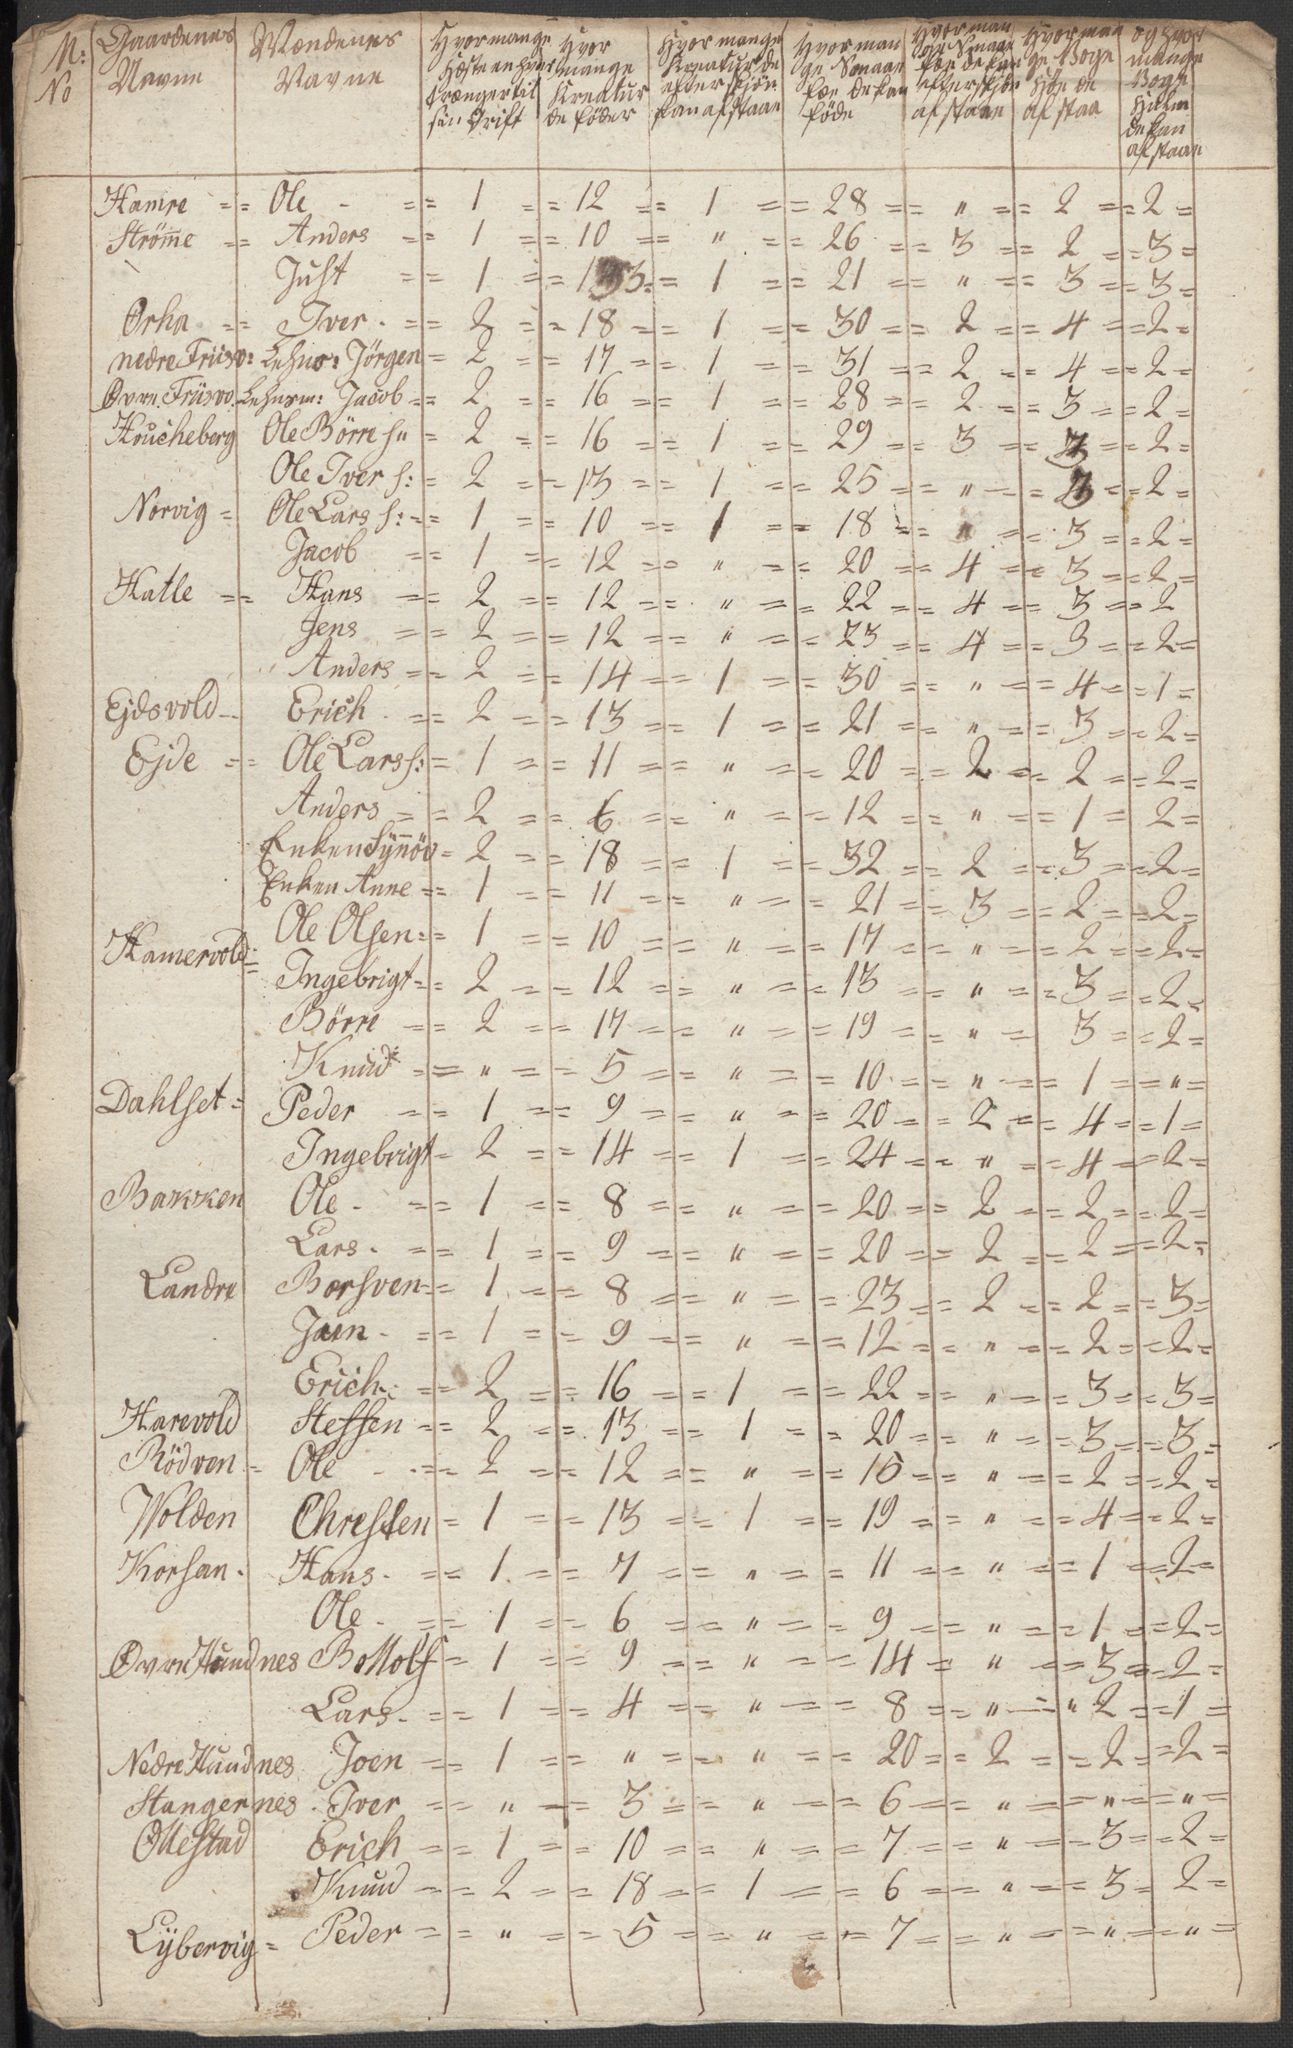 M: No | Gaardenes Navne | Mændenes Navne | Hvor mange Hæste en hver trænger til sin Drift | Hvor mange Kreatur de föder | Hvor mange Kreatur de efter skjön kan afstaae | Hvor man ge Smaae fæe de kan föde | Hvor man ge Smaae fæe de kan efter skjön afstaae | Hvor man ge Voge Höe de afstaa | og hvor mange Voge Halm de kan afstaae
Hamre == Ole - == 1 == 12 == 1 == 28 == " == 2 == 2 =
Strömme == Anders == 1 == 10 == " == 26 == 3 == 2 == 3 =
Just == 1 == 13 == 1 == 21 == " == 3 == 3 =
Orha == Iver - == 2 == 18 == 1 == 30 == 2 == 4 == 2 =
nedre Friisvo: Lehns: Jörgen = 2 == 17 == 1 == 31 == 2 == 4 == 2 =
Övre Friisvo. Lehnsm: Jacob == 2 == 16 == 1 == 28 == 2 == 3 == 2 =
Hrucheberg Ole Börre S: = 2 == 16 == 1 == 29 == 3 == 3 == 2 =
Ole Iver S: = 2 == 13 == 1 == 25 == " == 3 == 2 =
Norvig = Ole Lars S: == 1 == 10 == 1 == 18 == " == 3 == 2 =
Jacob == 1 == 12 == " == 20 == 4 == 3 == 2 =
Hatle == Hans == 2 == 12 == " == 22 == 4 == 3 == 2
Jens == 2 == 12 == " == 23 == 4 == 3 == 2 =
Anders == 2 == 14 == 1 == 30 == " == 4 == 1 =
Ejdsvold - Erich - == 2 == 13 == 1 == 21 == " == 3 == 2 =
Ejde == Ole Lars S: = 1 == 11 == " == 20 == 2 == 2 == 2 =
Anders == 2 == 6 == " == 12 == " == 1 = 2 =
Enken Synnöv = 2 == 18 == 1 == 32 == 2 == 3 == 2 =
Enken Anne == 1 == 11 == " == 21 == 3 == 2 == 2 =
Hamervold = Ole Olsen == 1 == 10 == " == 17 == " == 2 == 2 =
Ingebrigt == 2 == 12 == " == 13 == " == 3 == 2 =
Börre == 2 == 17 == " == 19 == " = 3 == 2 =
Knud == " == 5 == " == 10 == " == 1 == " =
Dahlset = Peder == 1 == 9 == " == 20 == 2 == 4 == 1 =
Ingebrigt = 2 == 14 == 1 == 24 == " == 4 == 2 =
Bakken Ole - == 1 == 8 == " == 20 == 2 == 2 == 2 =
Lars - == 1 == 9 == " == 20 == 2 == 2 == 2 =
Landre Borsven == 1 == 8 == " == 23 == 2 == 2 == 3 =
Joen - == 1 == 9 == " == 12 == " == 2 == 2 =
Erich == 2 == 16 == 1 == 22 == " == 3 == 3 =
Harevold Steffen == 2 == 13 == 1 == 20 == " == 3 == 3 =
Rödven = Ole - == 2 == 12 == " == 15 == " == 2 == 2 =
Wolden Christen = 1 == 13 == 1 == 19 == " == 4 == 2 =
Korsan - Hans - == 1 == 7 == " == 11 == " == 1 == 2 =
Ole - == 1 == 6 == " == 9 == " == 1 == 2 =
Övre Hundnes Bottolf = 1 == 9 == " == 14 = " == 3 == 2 =
Lars - == 1 == 4 == " == 8 == " == 2 == 1 =
Nedre Hundnes Joen == 1 == " == " == 20 == 2 == 2 == 2 =
Stangernes - Iver == " == 3 == " == 6 == " == " == " =
Ollestad Erich == 1 == 10 == " == 7 == " == 3 == 2 =
Knud == 2 == 18 == 1 == 6 == " == 3 == 2 =
Lybervig = Peder == " == 5 == " == 7 == " == " == " =